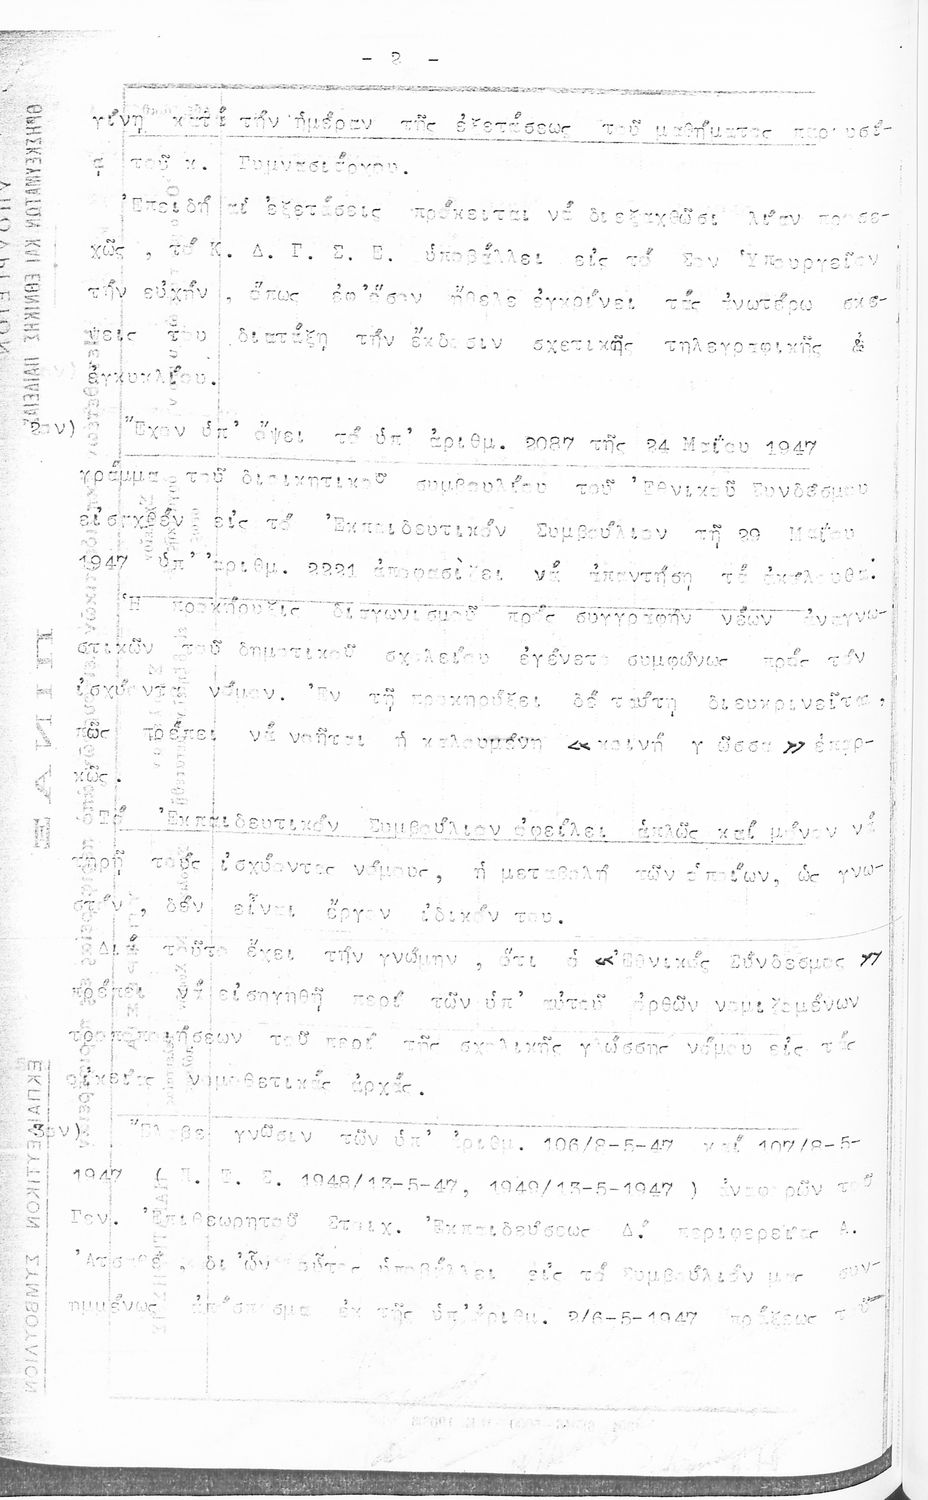 - 2 -
γίνη κατά τήν ἡμέραν τῆς ἐξετάσεως τοῦ μαθήματος παρουσί-
ᾳ τοῦ κ. Γυμνασιάρχου.
Ἐπειδή αἱ ἐξετάσεις πρόκειται νά διεξαχθῶσι λίαν προσε-
χῶς, τό Κ. Δ. Γ. Σ. Ε. ὑποβάλλει εἰς τό Σον Ὑπουργεῖον
τήν εὐχήν, ὅπως ἐφ'ὅσον ἤθελε ἐγκρίνει τάς ἀνωτέρω σκέ-
ψεις του διατάξῃ τήν ἔκδοσιν σχετικῆς τηλεγραφικῆς
ἐγκυκλίου.
2ον) Ἔχον ὑπ' ὄψει τό ὑπ' ἀριθμ. 2087 τῆς 24 Μαΐου 1947
γράμμα τοῦ διοικητικοῦ συμβουλίου τοῦ 'Εθνικοῦ Συνδέσμου
εἰσαχθέν εἰς τό 'Εκπαιδευτικόν Συμβούλιον τῇ 29 Μαΐου
1947 ὑπ' ἀριθμ. 2221 ἀποφασίζει νά ἀπαντήσῃ τά ἀκόλουθα:
Ἡ προκήρυξις διαγωνισμοῦ πρός συγγραφήν νέων ἀναγνω-
στικῶν τοῦ δημοτικοῦ σχολείου ἐγένετο συμφώνως πρός τόν
ἰσχύοντα νόμον. 'Εν τῇ προκηρύξει δέ ταύτῃ διευκρινεῖται,
πῶς πρέπει νά νοῆται ἡ καλουμένη «κοινή γλῶσσα» ἐπαρ-
κῶς.
Τό 'Εκπαιδευτικόν Συμβούλιον ὀφείλει ἁπλῶς καί μόνον νά
τηρῇ τούς ἰσχύοντας νόμους, ἡ μεταβολή τῶν ὁποίων, ὡς γνω-
στόν, δέν εἶναι ἔργον ἰδικόν του.
Διά τοῦτο ἔχει τήν γνώμην, ὅτι ὁ «'Εθνικός Σύνδεσμος»
πρέπει νά εἰσηγηθῇ περί τῶν ὑπ' αὐτοῦ ὀρθῶν νομιζομένων
τροποποιήσεων τοῦ περί τῆς σχολικῆς γλώσσης νόμου εἰς τάς
οἰκείας νομοθετικάς ἀρχάς.
3ον) Ἔλαβε γνῶσιν τῶν ὑπ' ἀριθμ. 106/8-5-47 καί 107/8-5-
1947 ( Π. Ε. Σ. 1948/13-5-47, 1949/13-5-1947 ) ἀναφορῶν τοῦ
Γεν. Ἐπιθεωρητοῦ Στοιχ. Ἐκπαιδεύσεως Δ.' περιφερείας Α.
δι'ὧν οὗτος ὑποβάλλει εἰς τό Συμβούλιόν μας συν-
ημμένως ἀπόσπασμα ἐκ τῆς ὑπ'ἀριθμ. 2/6-5-1947 πράξεως τοῦ